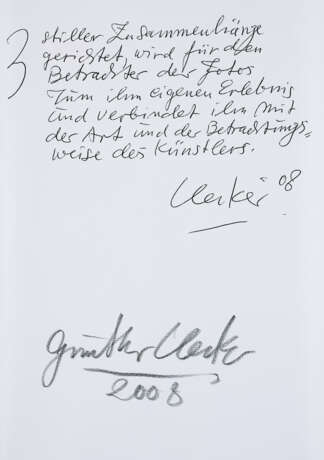 3
stiller Zusammenhänge
gerichtet, wird für den
Betrachter der Fotos
zum ihm eigenen Erlebnis
und verbindet ihm mit
der Art und der Betrachtungs=
weise des Künstlers.
Uecker 08
Günther Uecker
2008